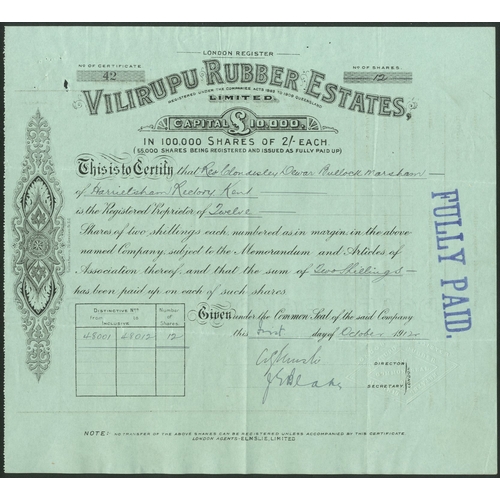 LONDON REGISTER
No OF CERTIFICATE.
42
No OF SHARES.
12
VILIRUPU RUBBER ESTATES,
REGISTERED UNDER THE COMPANIES ACTS 1863 TO 1909 QUEENSLAND
LIMITED.
CAPITAL £10,000,
IN 100,000 SHARES OF 2/- EACH.
(55,000 SHARES BEING REGISTERED AND ISSUED AS FULLY PAID UP)
This is to Certify that Cloudesley Dewar Bullock Marsham
of Harrietsham Rectory Kent
is the Registered Proprietor of Twelve
Shares of two shillings each, numbered as in margin in the above-
named Company, subject to the Memorandum and Articles of
Association thereof, and that the sum of Two Shillings
has been paid up on each of such shares.
FULLY PAID.
DISTINCTIVE Nos
From to Inclusive
Number of Shares
48001 48012 12
Given under the Common Seal of the said Company
this first day of October 1912
DIRECTOR
SECRETARY
LONDON
NOTE: NO TRANSFER OF THE ABOVE SHARES CAN BE REGISTERED UNLESS ACCOMPANIED BY THIS CERTIFICATE.
LONDON AGENTS:- ELMSLIE, LIMITED.